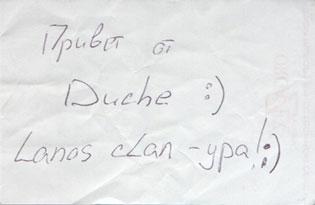 Привет от
Duche :)
Lanos cLan - ура! :)